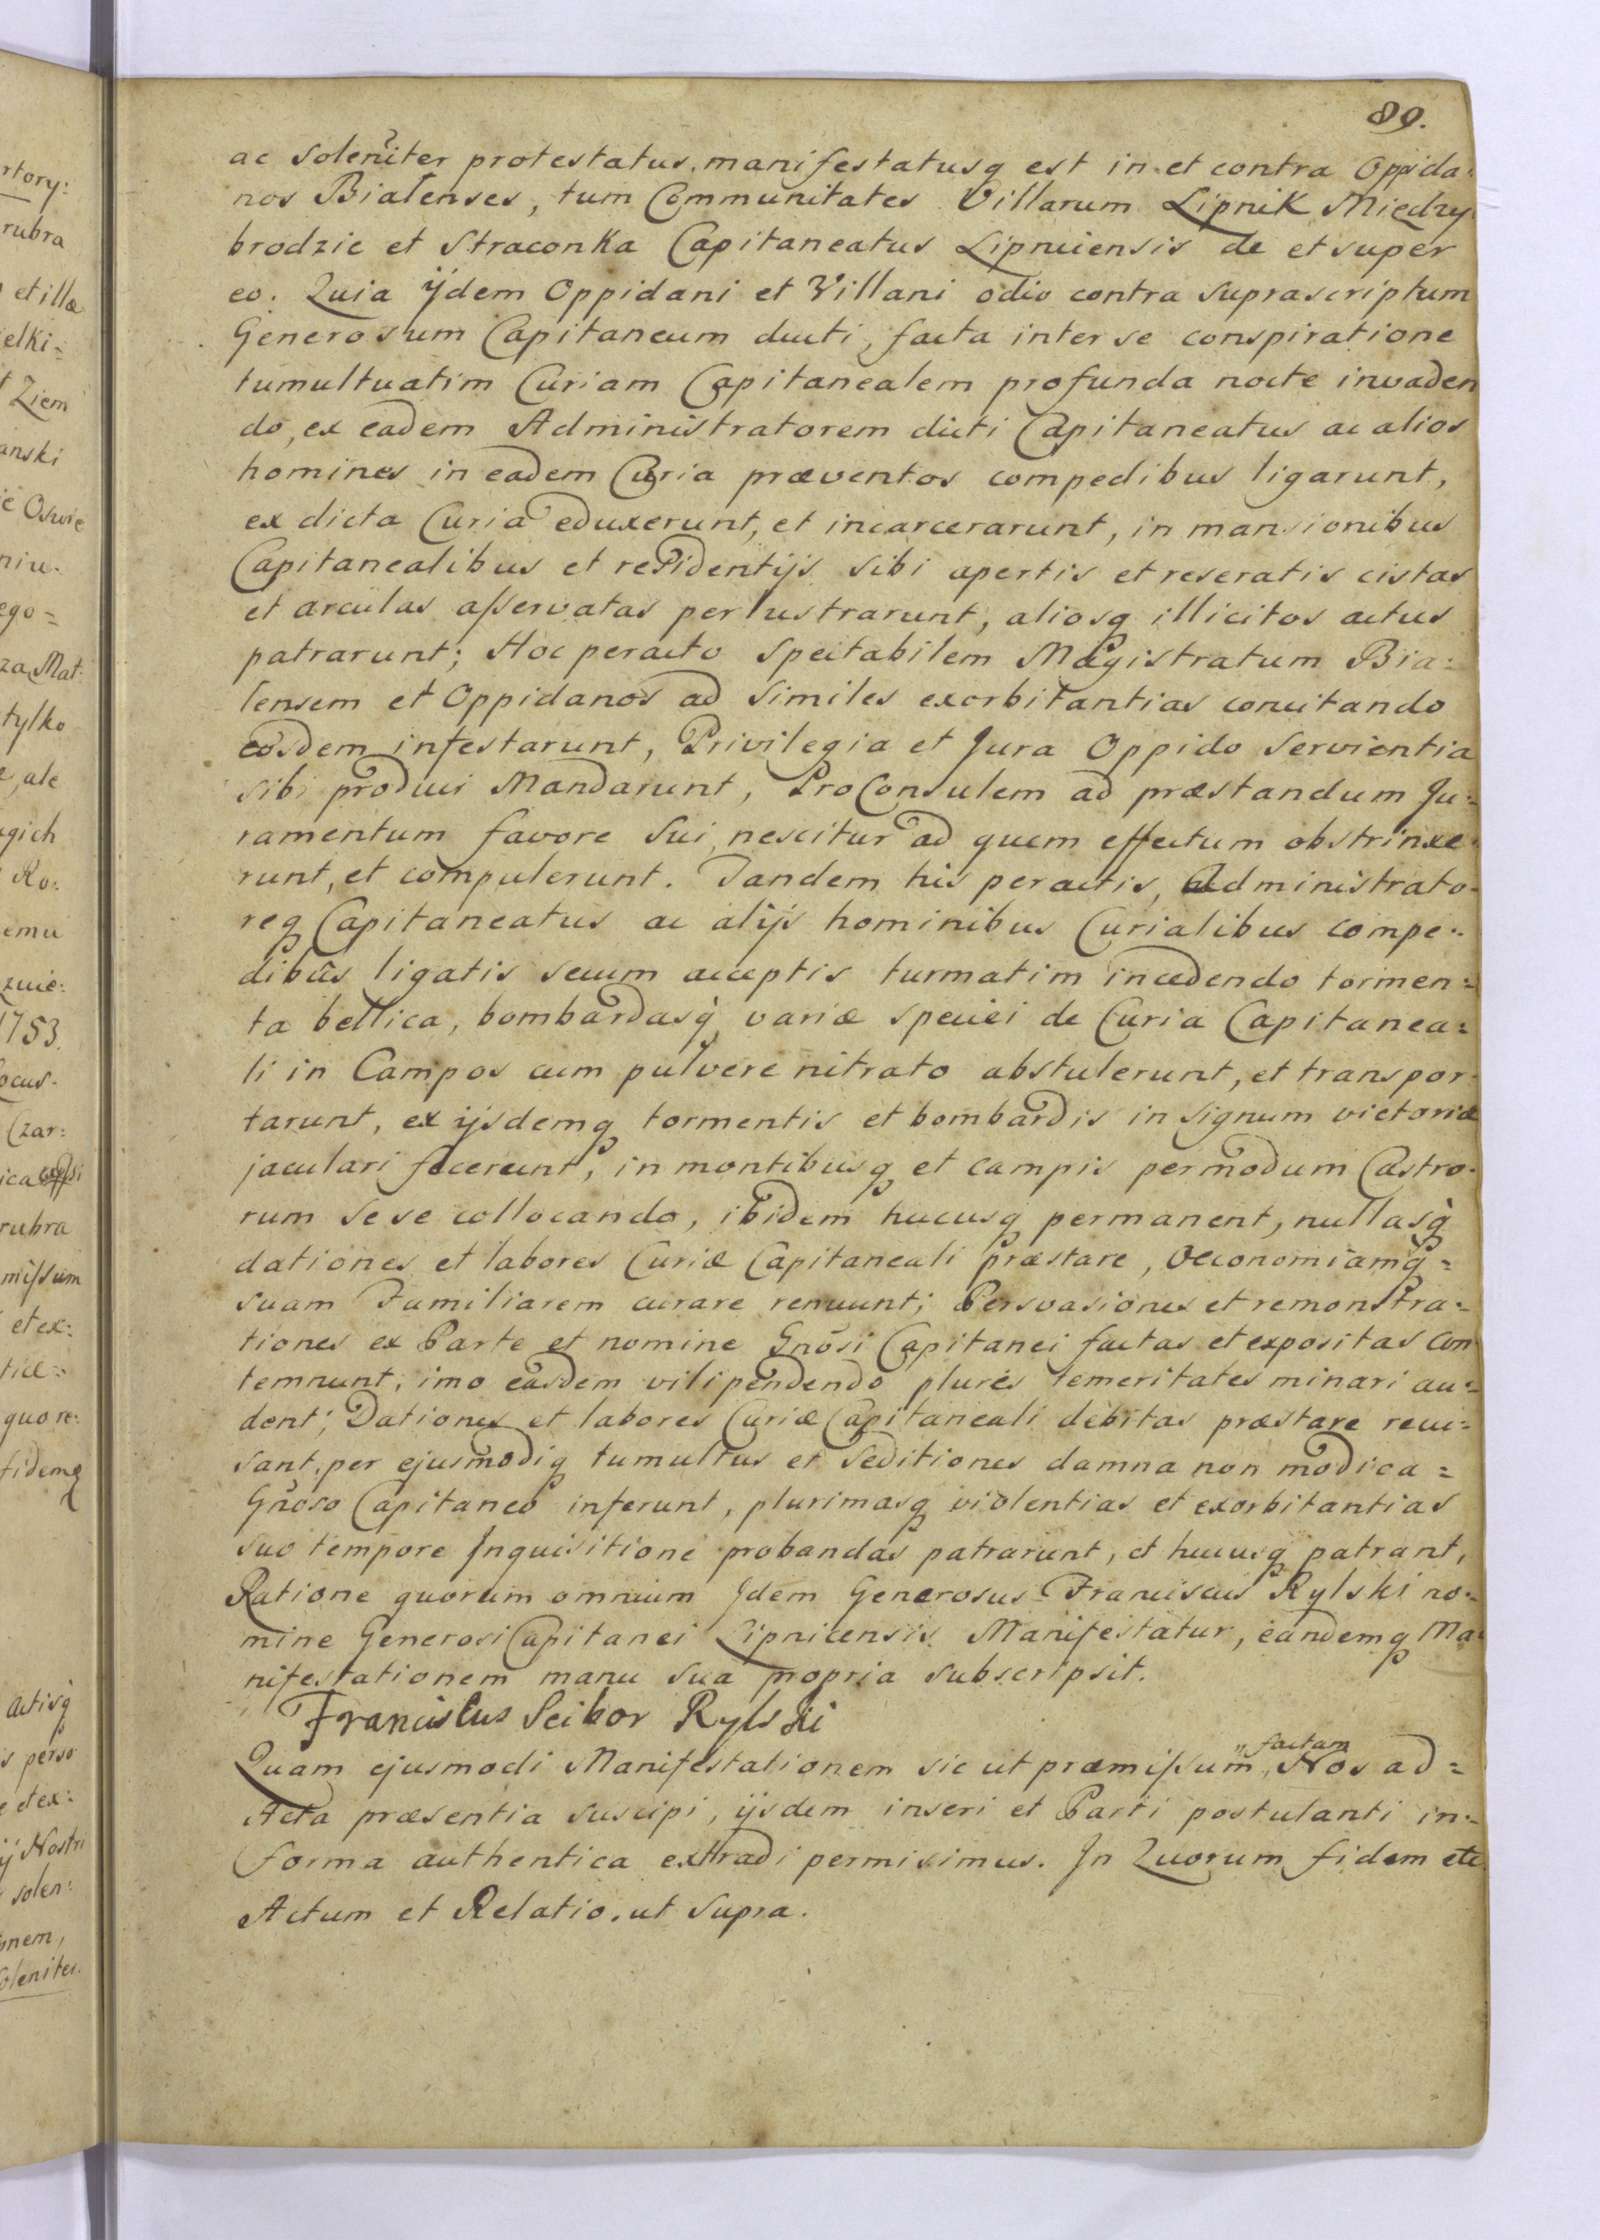 89.
ac soleniter protestatus, manifestatusq est in et contra Oppida=
nos Bialenses, tum Communitates Villarum Lipnik Miedzy
brodzie et Straconka Capitaneatus Lipnicensis de et super
eo. Quia ijdem Oppidani et Villani odio contra suprascriptum
Generosum Capitaneum ducti, facta inter se conspiratione
tumultuatim Curiam Capitanealem profunda nocte invaden
do, ex eadem Administratorem dicti Capitaneatus ac alios
homines in eadem Curia præventos compedibus ligarunt,
ex dicta Curia eduxerunt, et incarcerarunt, in mansionibus
Capitanealibus et residentijs sibi apertis et reseratis cistas
et arculas asservatas perlustrarunt, aliosq illicitos actus
patrarunt; Hoc peracto Spectabilem Magistratum Bia=
lensem et Oppidanos ad similes exorbitantias concitando
eosdem infestarunt, Privilegia et Jura Oppido servientia
sibi produci Mandarunt, ProConsulem ad præstandum Ju=
ramentum favore sui, nescitur ad quem effectum obstrinxe=
runt, et compulerunt. Tandem his peractis, Administrato=
req Capitaneatus ac alijs hominibus Curialibus compe=
dibus ligatis secum acceptis turmatim incedendo tormen=
ta bellica, bombardasq variæ speciei de Curia Capitanea=
li in Campos cum pulvere nitrato abstulerunt, et transpor=
tarunt, ex ijsdemq tormentis et bombardis in signum victoriæ
jaculari fecerunt, in montibusq et campis per modum Castro=
rum sese collocando, ibidem hucusq permanent, nullasq
dationes et labores Curiæ Capitaneali præstare, Oeconomiamq=
suam Familiarem curare renuunt; Persvasiones et remonstra=
tiones ex Parte et nomine Gnosi Capitanei factas et expositas con
temnunt, imo easdem vilipendendo plures temeritates minari au=
dent; Dationes et labores Curiæ Capitaneali debitas præstare recu=
sant, per ejusmodiq tumultus et seditiones damna non modica=
Gnoso Capitaneo inferunt, plurimasq violentias et exorbitantias
suo tempore Inquisitione probandas patrarunt, et hucusq patrant,
Ratione quorum omnium Idem Generosus Franciscus Rylski no=
mine Generosi Capitanei Lipnicensis Manifestatur, eandemq Ma=
nifestationem manu sua propria subscripsit.
Franciscus Scibor Rylski
Quam ejusmodi Manifestationem sic ut præmissum, factam Nos ad=
Acta præsentia suscipi, ijsdem inseri et Parti postulanti in=
forma authentica extradi permisimus. In Quorum fidem etc
Actum et Relatio, ut Supra.